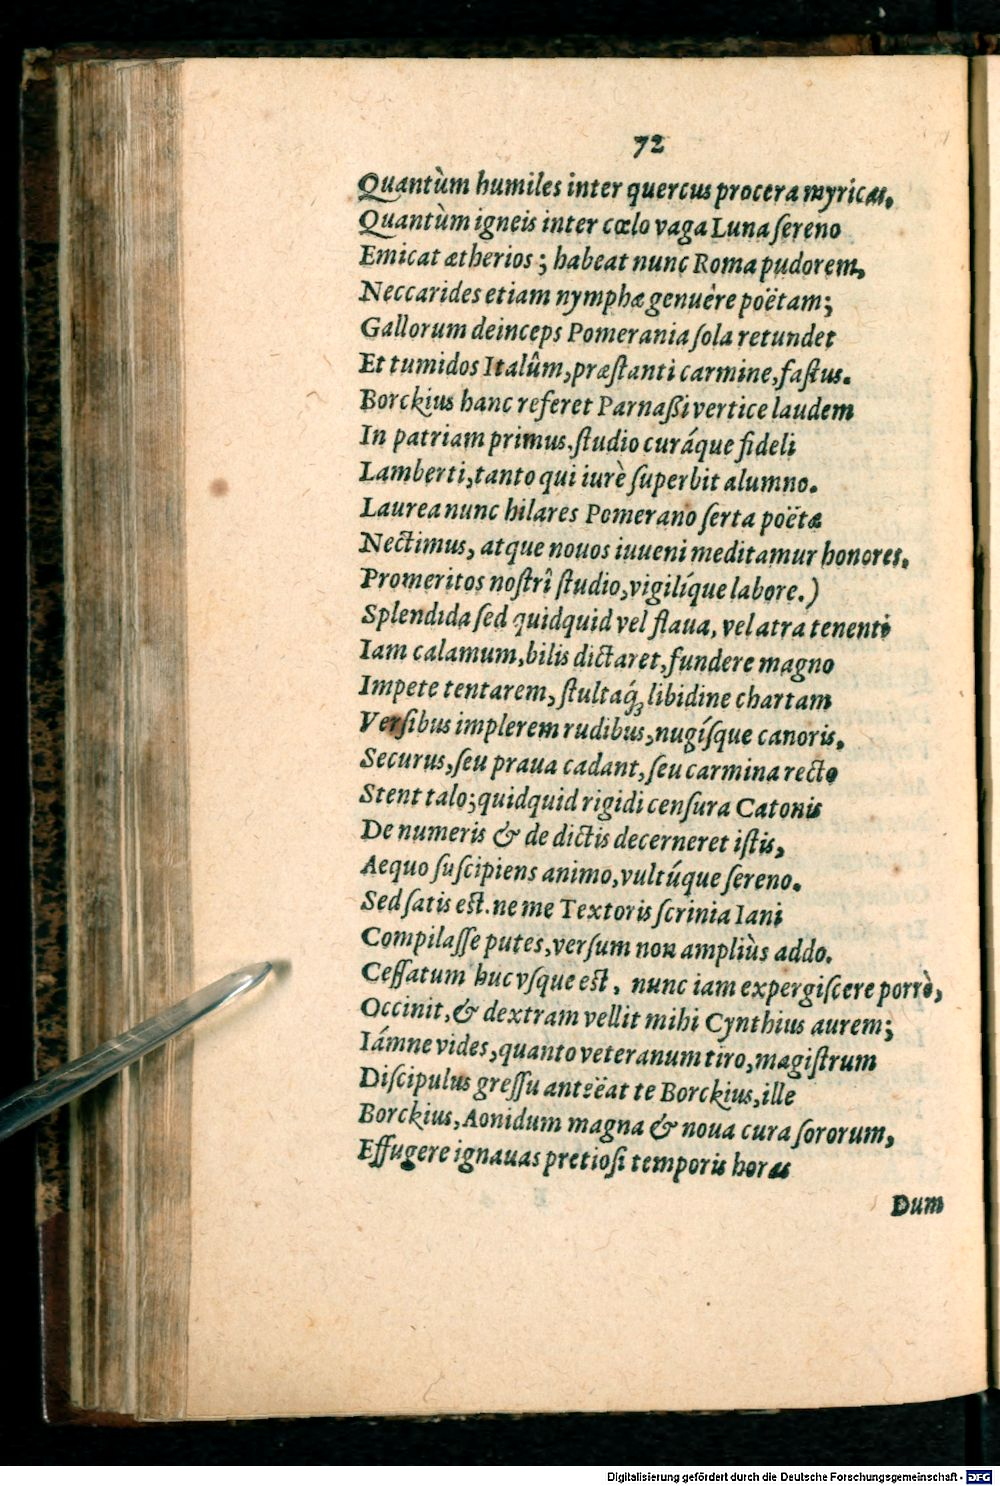 72
Quantùm humiles inter quercus procera myricas,
Quantùm igneis inter cœlo vaga Luna ſereno
Emicat ætherios; habeat nunc Roma pudorem,
Neccarides etiam nymphæ genuêre poëtam;
Gallorum deinceps Pomerania ſola retundet
Et tumidos Italûm, præſtanti carmine, faſtus.
Borckius hanc referet Parnaßi vertice laudem
In patriam primus, ſtudio curáque fideli
Lamberti, tanto qui iurè ſuperbit alumno.
Laurea nunc hilares Pomerano ſerta poëtæ
Nectimus, atque nouos iuueni meditamur honores,
Promeritos noſtrî ſtudio, vigilíque labore.)
Splendida ſed quidquid vel flaua, vel atra tenenti
Iam calamum, bilis dictaret, fundere magno
Impete tentarem, ſtultaq́; libidine chartam
Verſibus implerem rudibus, nugíſque canoris,
Securus, ſeu praua cadant, ſeu carmina recto
Stent talo; quidquid rigidi cenſura Catonis
De numeris & de dictis decerneret iſtis,
Aequo ſuſcipiens animo, vultúque ſereno.
Sed ſatis eſt. ne me Textoris ſcrinia Iani
Compilaſſe putes, verſum non ampliùs addo.
Ceſſatum huc vſque eſt, nunc iam expergiſcere porrè,
Occinit, & dextram vellit mihi Cynthius aurem;
Iámne vides, quanto veteranum tiro, magiſtrum
Diſcipulus greſſu anteëat te Borckius, ille
Borckius, Aonidum magna & noua cura ſororum,
Effugere ignauas pretioſi temporis horas
Dum
Digitalisierung gefördert durch die Deutsche Forschungsgemeinschaft - DFG